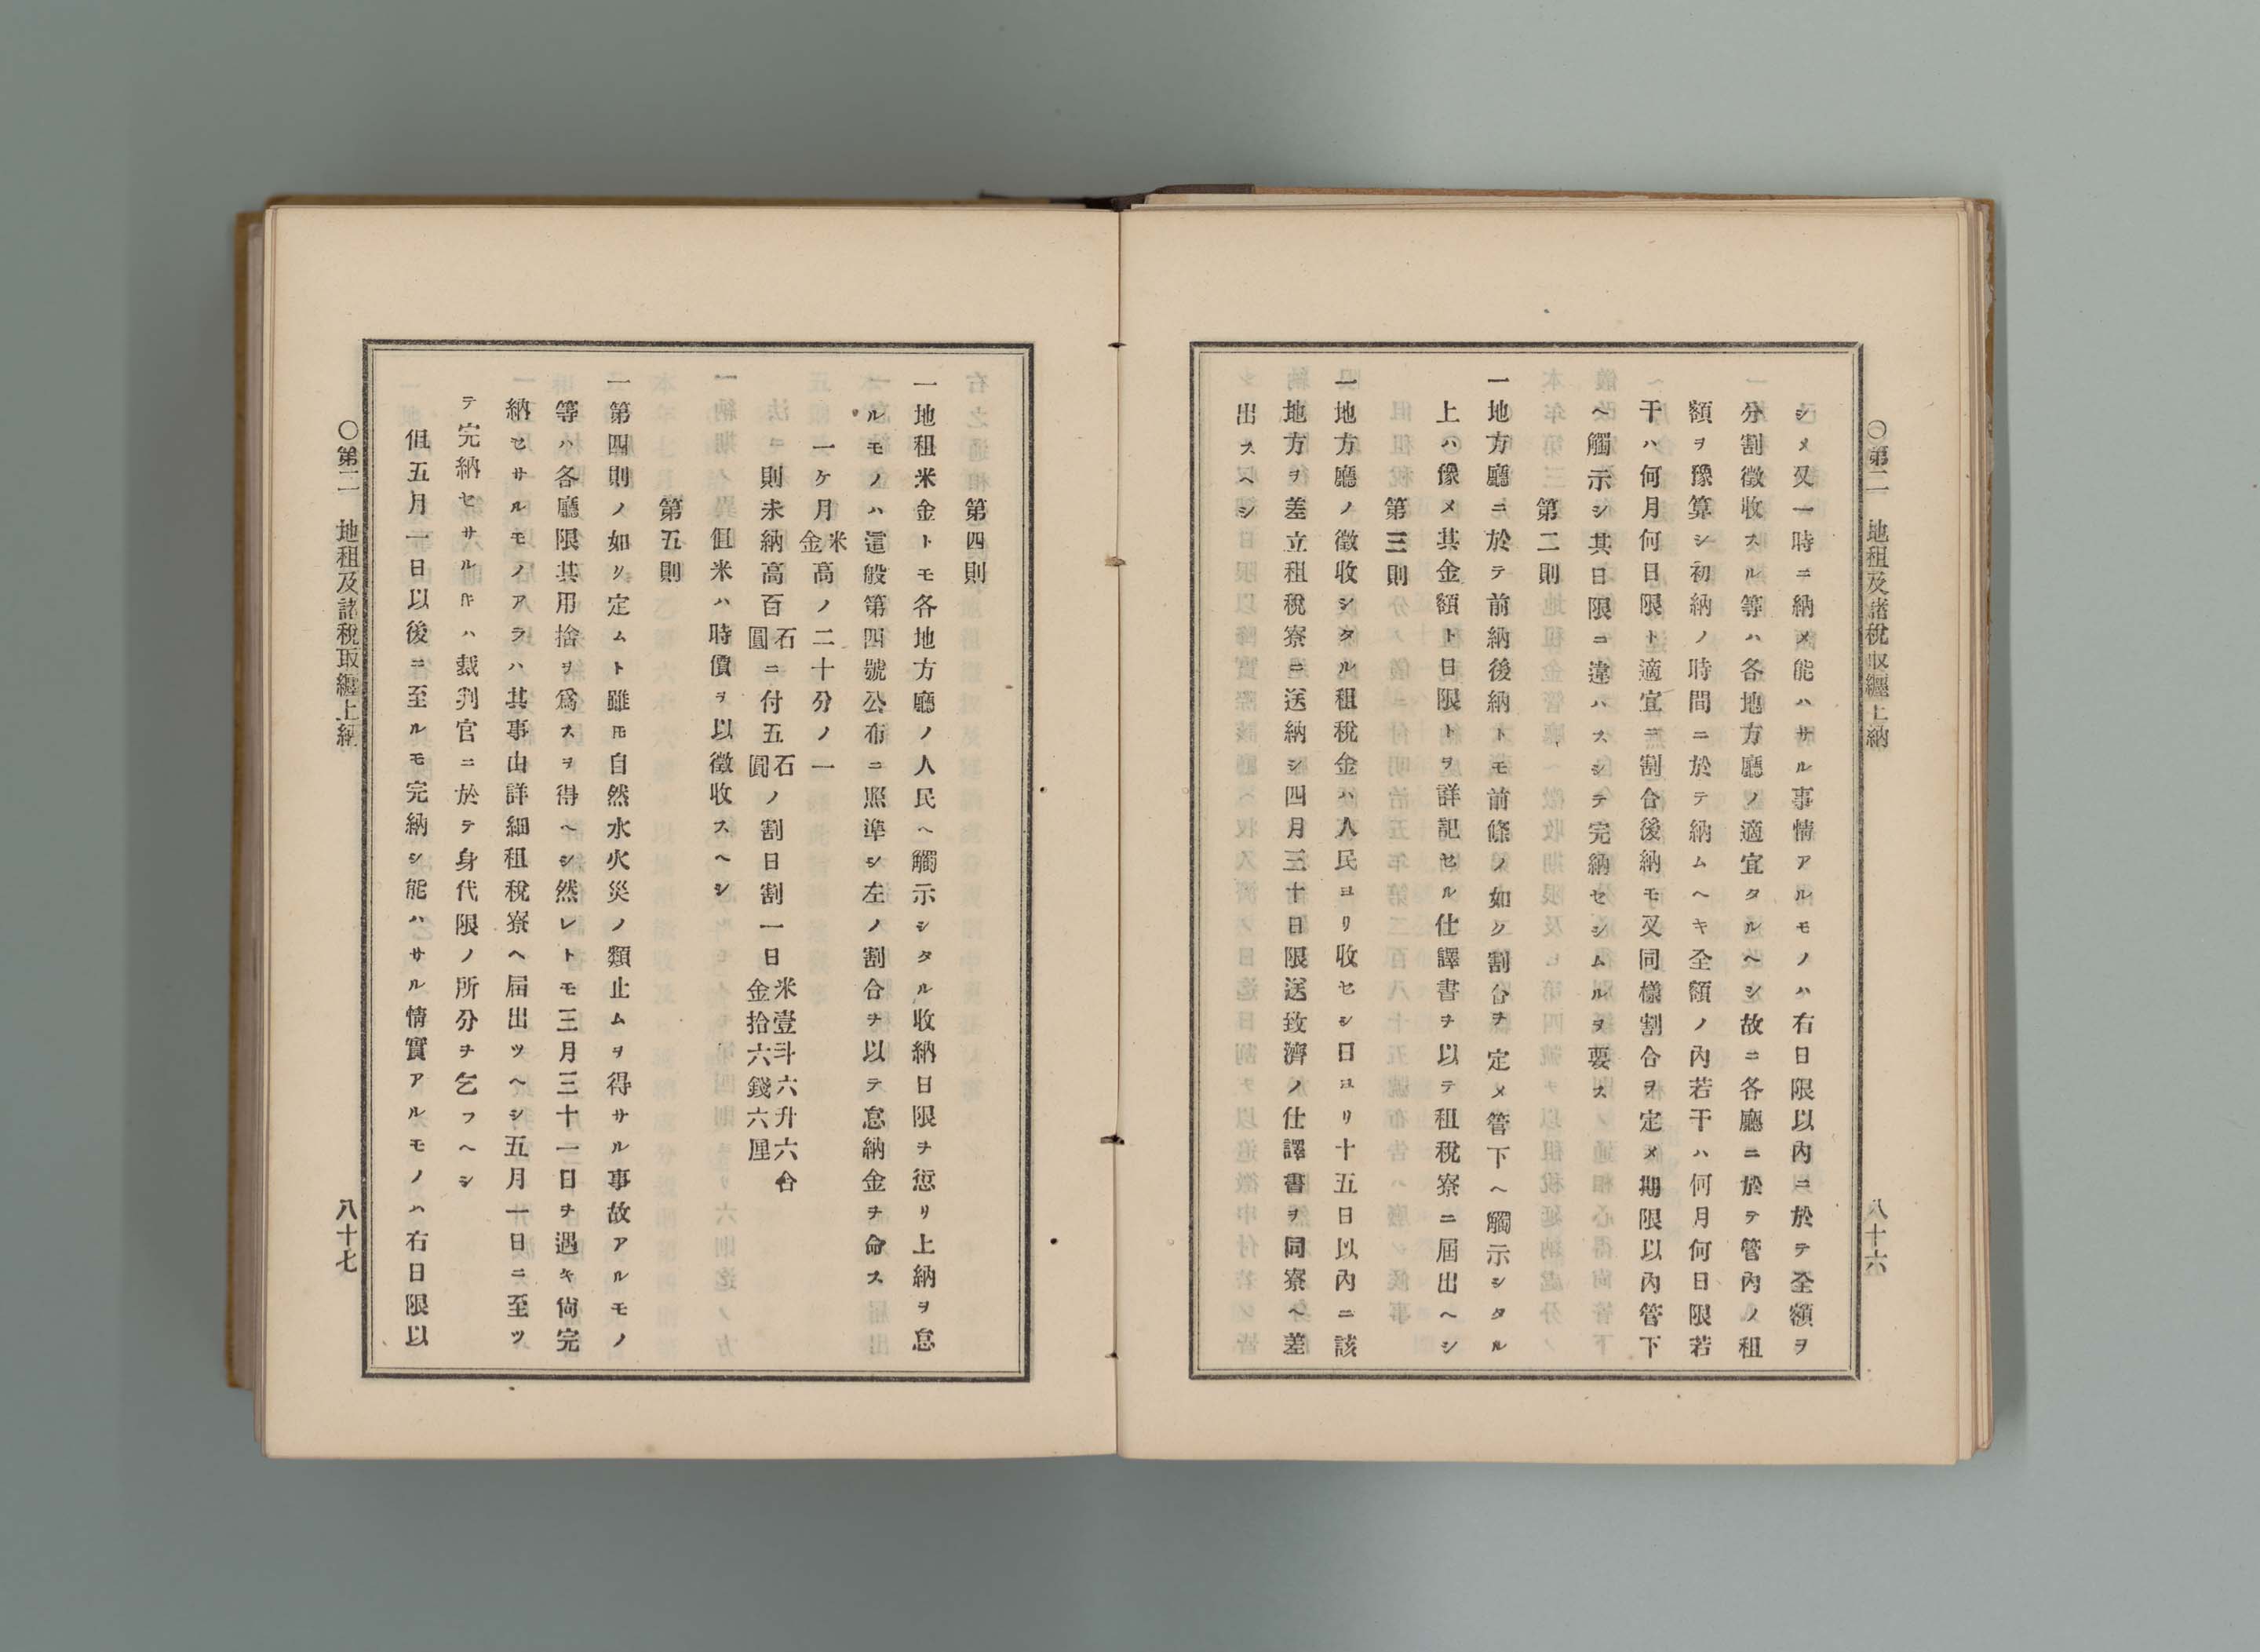 ○第二　地租及諸税取纒上納
八十六
シメ又一時ニ納メ能ハサル事情アルモノハ右日限以內ニ於テ全額ヲ
分割徵收スル等ハ各地方廳ノ適宜タルヘシ故ニ各廳ニ於テ管內ノ租
額ヲ豫算シ初納ノ時間ニ於テ納ムヘキ全額ノ內若干ハ何月何日限若
干ハ何月何日限ト適宜ニ割合後納モ又同樣割合ヲ定メ期限以內管下
ヘ觸示シ其日限ニ違ハスシテ完納セシムルヲ要ス
第二則
一地方廳ニ於テ前納後納トモ前條ノ如ク割合ヲ定メ管下ヘ觸示シタル
上ハ豫メ其金額ト日限トヲ詳記セル仕譯書ヲ以テ租稅寮ニ屆出ヘシ
第三則
一地方廳ノ徵收シタル租稅金ハ人民ヨリ收セシ日ヨリ十五日以內ニ該
地方ヲ差立租稅寮ニ送納シ四月三十日限送致濟ノ仕譯書ヲ同寮ヘ差
出スヘシ
第四則
一地租米金トモ各地方廳ノ人民ヘ觸示シタル收納日限ヲ愆リ上納ヲ怠
ルモノハ這般第四號公布ニ照準シ左ノ割合ヲ以テ怠納金ヲ命ス
一ケ月米金高ノ二十分ノ一
則未納高百石圓ニ付五石圓ノ割日割一日米壹斗六升六合金拾六錢六厘
但米ハ時價ヲ以徵收スヘシ
第五則
一第四則ノ如リ定ムト雖𪜈自然水火災ノ類止ムヲ得サル事故アルモノ
等ハ各廳限其用捨ヲ爲スヲ得ヘシ然レトモ三月三十一日ヲ過キ尙完
納セサルモノアラハ其事由詳細租稅寮ヘ屆出ツヘシ五月一日ニ至ツ
テ完納セサル𬼀ハ裁判官ニ於テ身代限ノ所分ヲ乞フヘシ
但五月一日以後ニ至ルモ完納シ能ハサル情實アルモノハ右日限以
○第二　地租及諸税取纒上納
八十七